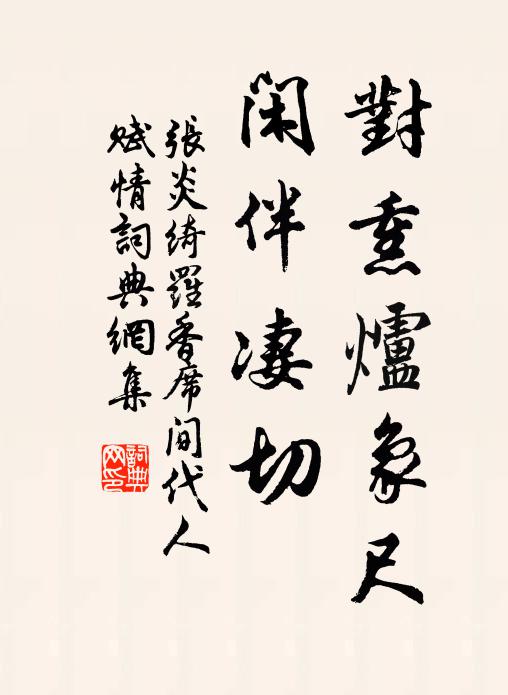 對熏爐象尺
閑伴凄切
張炎綺羅香席间代人
賦情詞典網集
詞典网印